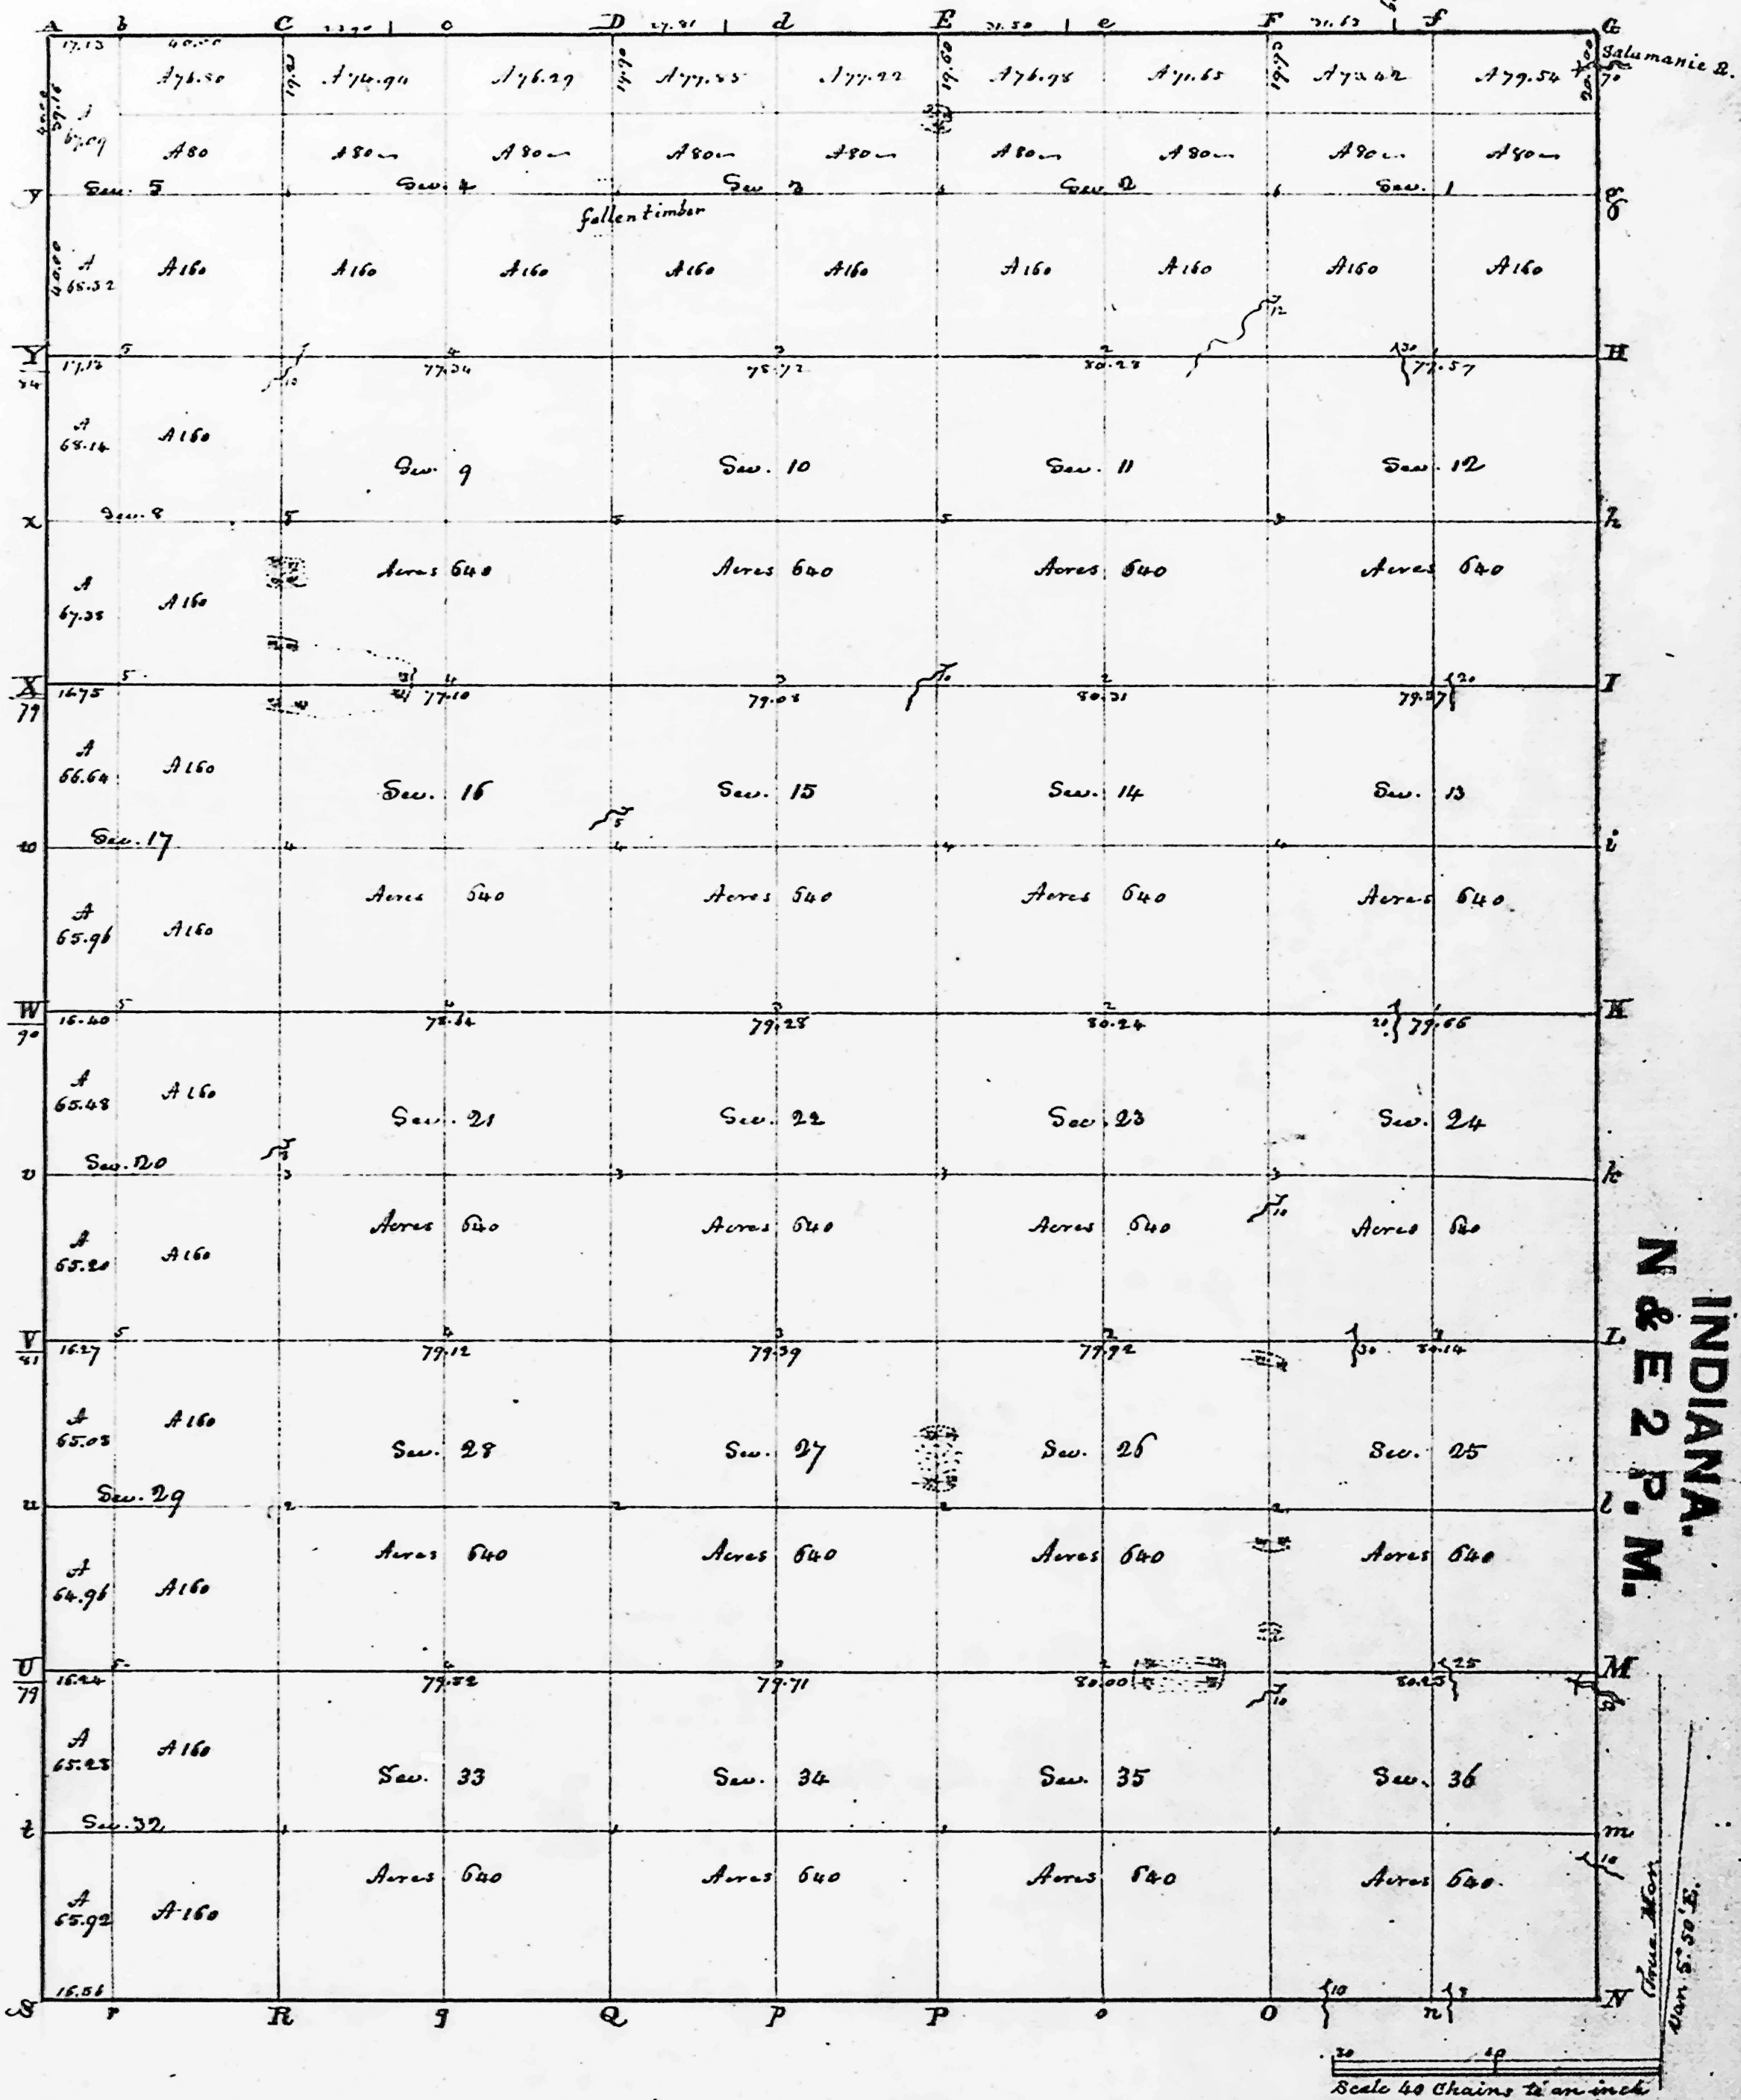 A b C c D 27.81 d E 31.50 e F 31.63 f G
17.13 40.00
Salamanie R.
A 76.50 19.21 A 74.94 A 76.29 19.90 A 77.22 19.60 A 76.98 A 71.65 19.93 A 79.54 20.00 70
40.00
A 67.09
A 80 A 80 A 80 A 80 A 80 A 80 A 80 A 80 A 80
y Sec. 5 Sec. 4 Sec. 3 Sec. 2 Sec. 1 g
fallen timber
40.00 A A 160 A 160 A 160 A 160 A 160 A 160 A 160 A 160 A 160
68.32
12
Y 5 4 3 2 30 1 H
84 17.12 77.34 78.72 80.28 77.57
10
A 68.14 A 160
Sec. 9 Sec. 10 Sec. 11 Sec. 12
x Sec. 8 5 5 5 5 h
Acres 640 Acres 640 Acres 640 Acres 640
A 67.38 A 160
X 5 4 3 10 2 20 I
79 16.75 77.10 79.08 80.31 79.57
A 66.64 A 160
Sec. 16 Sec. 15 Sec. 14 Sec. 13
5
w Sec. 17 4 4 4 4 i
Acres 640 Acres 640 Acres 640 Acres 640
A 65.96 A 160
W 5 4 3 2 1 K
90 16.40 78.64 79.28 80.24 79.66
A 65.48 A 160
Sec. 21 Sec. 22 Sec. 23 Sec. 24
v Sec. 20 3 3 3 3 k
Acres 640 Acres 640 Acres 640 10 Acres 640
A 65.20 A 160
V 5 4 3 2 1 L
81 16.27 79.12 79.39 79.92 30 80.14
A 65.08 A 160
Sec. 28 Sec. 27 Sec. 26 Sec. 25
u Sec. 29 2 2 2 2 l
Acres 640 Acres 640 Acres 640 Acres 640
A 64.96 A 160
U 5 4 3 2 25 M
79 16.24 79.52 79.71 80.00 10 80.25
A 65.25 A 160
Sec. 33 Sec. 34 Sec. 35 Sec. 36
t Sec. 32 1 1 1 1 m
10
Acres 640 Acres 640 Acres 640 Acres 640
A 65.92 A 160
16.56
S r R q Q p P o O 10 n 8 N
INDIANA.
N & E 2 P. M.
True Mer.
Var. 5° 50' E.
Scale 40 Chains to an inch